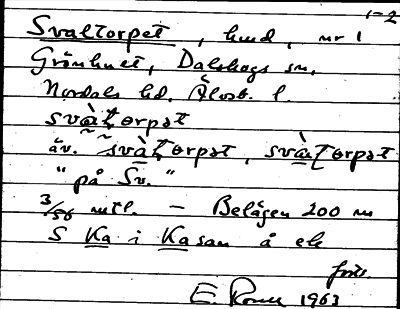 1-2
Svaltorpet, hmd, nr 1
Grönhult, Dalskogs sn,
Nordals hd. Älvsb. l.
svàʈɵrpət
äv. svàʈɵrpət, svàʈɵrpət
"på Sv."
3/56 mtl. – Belägen 200 m
S Ka i Kasan å ele
forts.
E. 1963